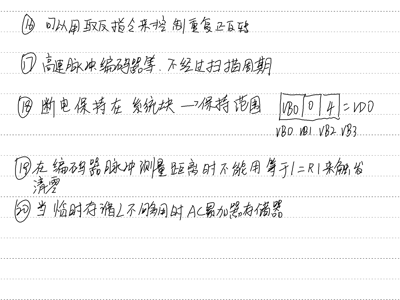 ⑯ 可以用取反指令来控制重复正反转
⑰ 高速脉冲编码器等.不经过扫描周期
⑱ 断电保持在系统块→保持范围 VB0 0 4 =VD0
VB0 VB1 VB2 VB3
⑲ 在编码器脉冲测量距离时不能用等于I=R1来触发
清零
⑳ 当临时存储L不够用时AC累加器存储器